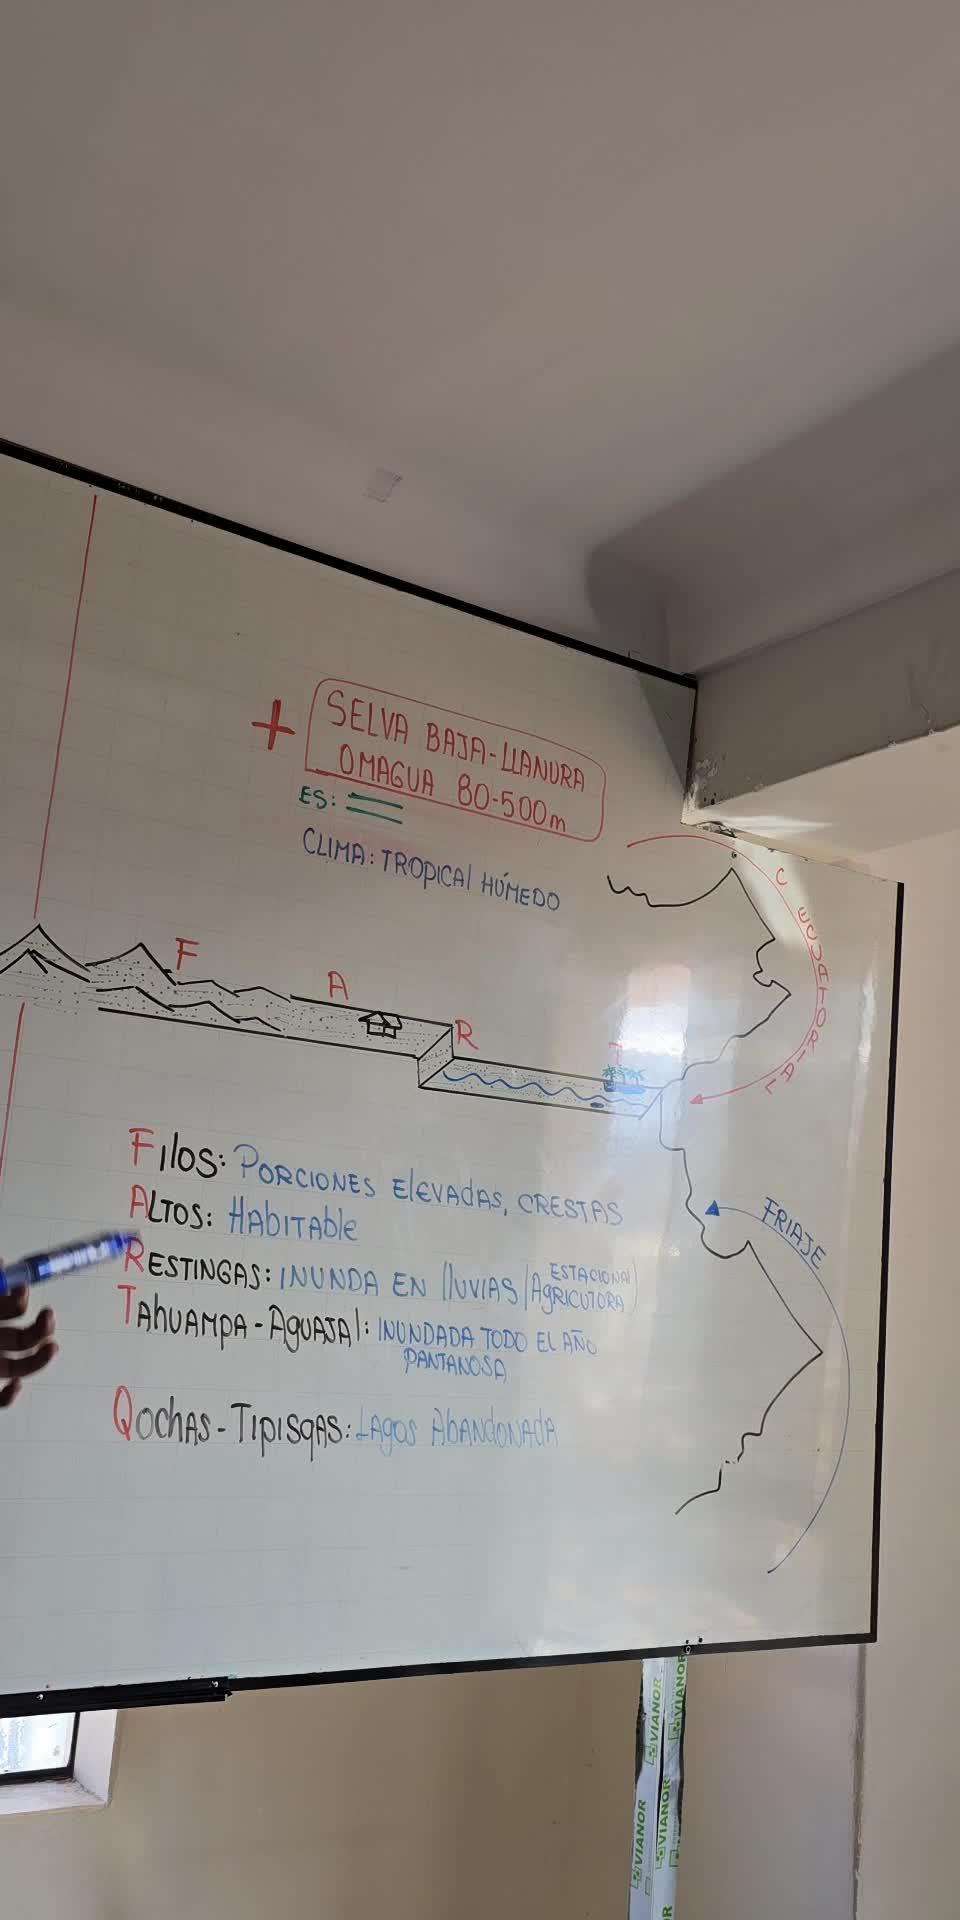 + SELVA BAJA-LLANURA
OMAGUA 80-500m
ES:
CLIMA: TROPICAL HÚMEDO
C ECUATORIAL
F
A
R
T
FRIAJE
FILOS: PORCIONES ELEVADAS, CRESTAS
ALTOS: HABITABLE
RESTINGAS: INUNDA EN LLUVIAS / ESTACIONAL
AGRICUTORA
TAHUAMPA-AGUAJAL: INUNDADA TODO EL AÑO
PANTANOSA
QOCHAS-TIPISQAS: LAGOS ABANDONADA
VIANOR
VIANOR
VIANOR
VIANOR
VIANOR